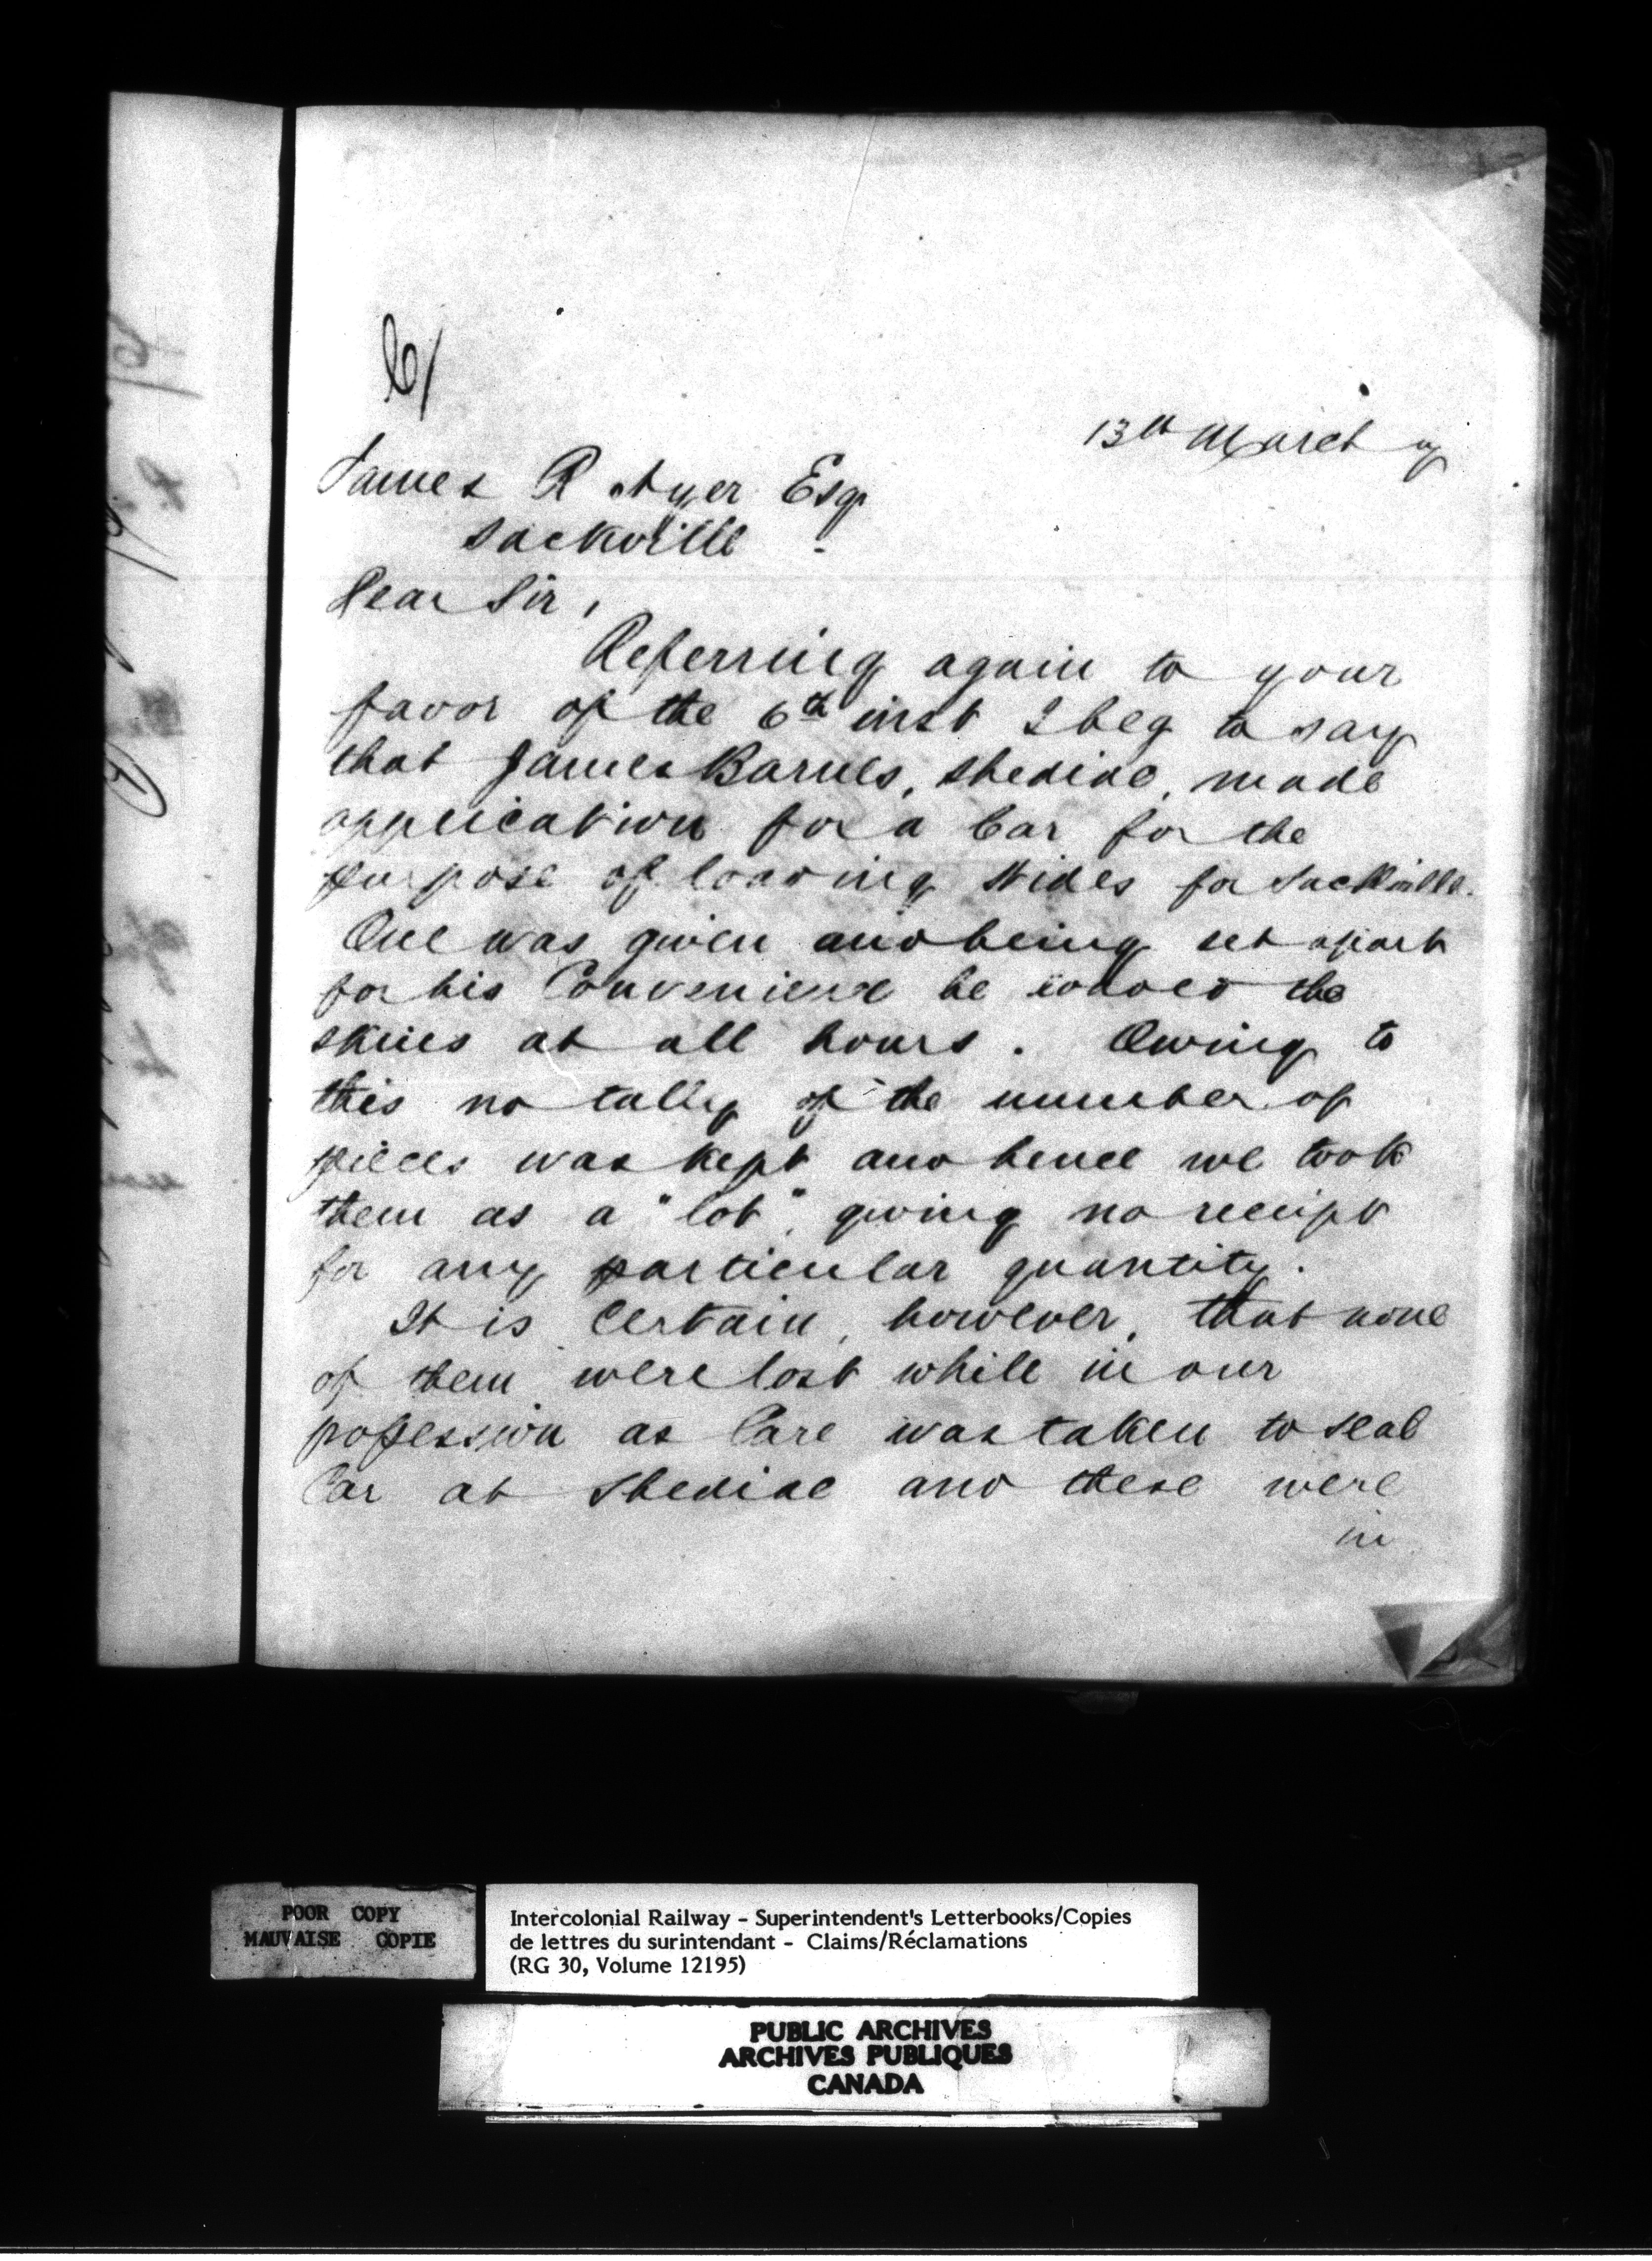 C/
13th March 79
James R Ayer Esq
Sackville
Dear Sir,
Referring again to your
favor of the 6th inst I beg to say
that James Barnes, Shediac, made
application for a Car for the
purpose of loading Hides for Sackville.
One was given and being set apart
for his Convenience he loaded the
skins at all hours. Owing to
this no tally of the number of
pieces was kept and hence we took
them as a "lot", giving no receipt
for any particular quantity.
It is Certain, however, that none
of them were lost while in our
possession as Care was taken to seal
Car at Shediac and these were
in
POOR COPY
MAUVAISE COPIE
Intercolonial Railway - Superintendent's Letterbooks/Copies
de lettres du surintendant - Claims/Réclamations
(RG 30, Volume 12195)
PUBLIC ARCHIVES
ARCHIVES PUBLIQUES
CANADA